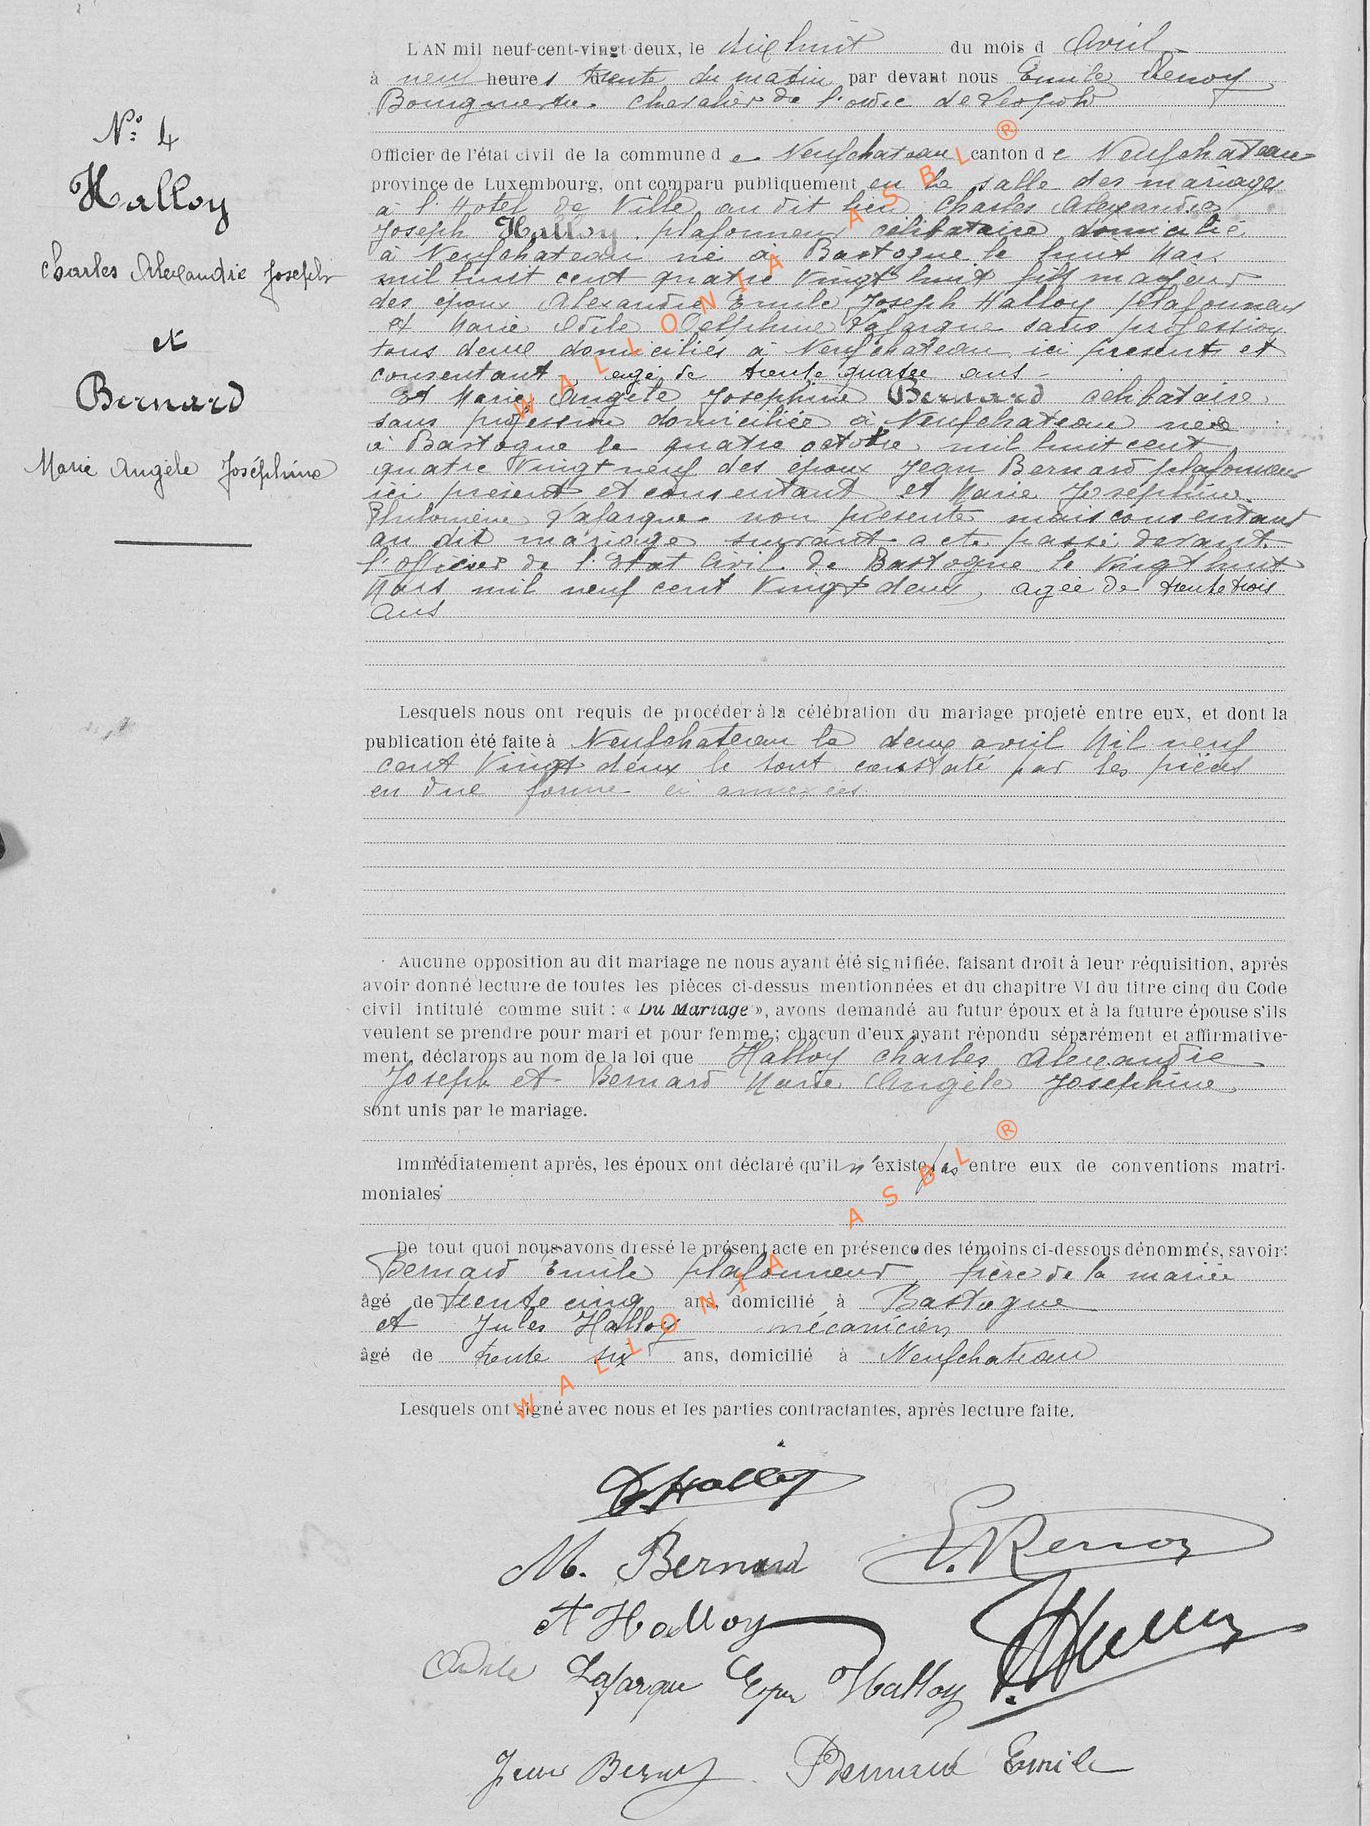 N° 4
Halloy
Charles Alexandre Joseph
et
Bernard
Marie Angèle Joséphine
L'AN mil neuf-cent-vingt deux, le dix huit du mois d Avril
à neuf heures trente du matin par devant nous Emile Renoy
Bourgmestre. Chevalier de l'ordre de Léopold
Officier de l'état civil de la commune de Neufchateau canton de Neufchateau
province de Luxembourg, ont comparu publiquement en la salle des mariages
à l'Hotel de Ville au dit lieu Charles Alexandre
Joseph Halloy. plafonneur célibataire domicilié
à Neufchateau né à Bastogne le huit Mars
mil huit cent quatre Vingt huit fils majeur
des époux Alexandre Emile Joseph Halloy plafonneur
et Marie Odile Delphine Lafargue sans profession
tous deux domiciliés à Neufchateau ici present et
consentant, agé de trente quatre ans -
Et Marie Angèle Josephine Bernard celibataire
sans profession domiciliée à Neufchateau née
à Bastogne le quatre octobre mil huit cent
quatre Vingt neuf des époux Jean Bernard plafonneur
ici present et consentant et Marie Joséphine
Philomène Lafargue non présente mais consentant
au dit mariage suivant acte passé devant
l'officier de l'Etat Civil de Bastogne le Vingt huit
Mars mil neuf cent Vingt deux, agée de trente trois
ans
Lesquels nous ont requis de procéder à la célébration du mariage projeté entre eux, et dont la
publication été faite à Neufchateau le deux avril Mil neuf
cent Vingt deux le tout constaté par les pièces
en due forme ci annexées
Aucune opposition au dit mariage ne nous ayant été signifiée, faisant droit à leur réquisition, après
avoir donné lecture de toutes les pièces ci-dessus mentionnées et du chapitre VI du titre cinq du Code
civil intitulé comme suit : « Du Mariage », avons demandé au futur époux et à la future épouse s'ils
veulent se prendre pour mari et pour femme ; chacun d'eux ayant répondu séparément et affirmative-
ment, déclarons au nom de la loi que Halloy Charles Alexandre
Joseph et Bernard Marie Angèle Josephine
sont unis par le mariage.
Immédiatement après, les époux ont déclaré qu'il n'existe pas entre eux de conventions matri-
moniales
De tout quoi nous avons dressé le présent acte en présence des témoins ci-dessous dénommés, savoir :
Bernard Emile plafonneur, frère de la mariée
âgé de trente cinq ans, domicilié à Bastogne
et Jules Halloy mécanicien
âgé de trente six ans, domicilié à Neufchateau
Lesquels ont signé avec nous et les parties contractantes, après lecture faite.
Halloy
M. Bernard E. Renoy
A Halloy
Odile Lafargue Halloy
Bernard Emile
WALLONIA ASBL ®
WALLONIA ASBL ®